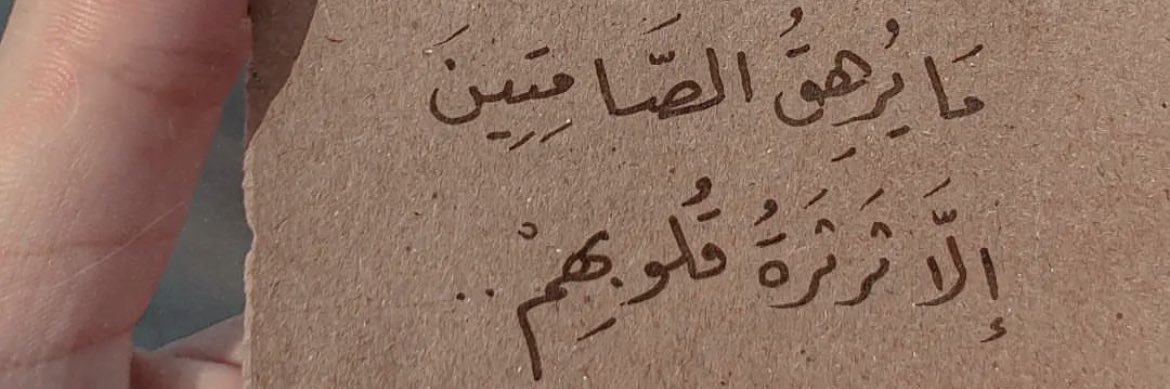 مَا يُرْهِقُ الصَّامِتِينَ
إِلَّا ثَرثَرَةُ قُلُوبِهِمْ ..